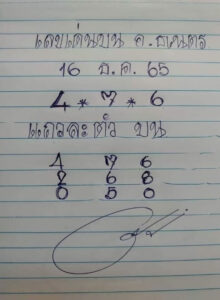 เลขเด่นบน อ.ธเนตร
16 ธ.ค. 65
4 * 7 * 6
แถวละตัว บน
4 7 6
2 6 8
0 5 0